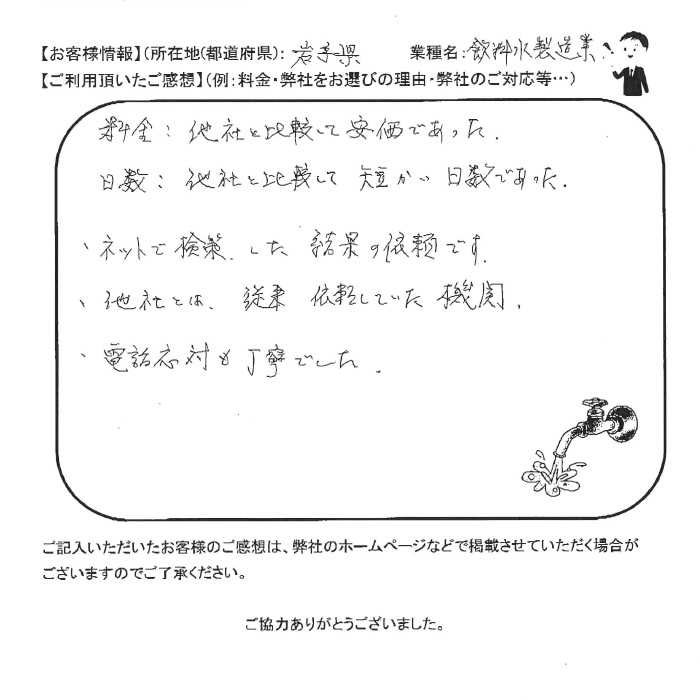 【お客様情報】(所在地(都道府県): 岩手県 業種名: 飲料水製造業
【ご利用頂いたご感想】(例:料金・弊社をお選びの理由・弊社のご対応等…)
料金: 他社と比較して安価であった.
日数: 他社と比較して 短かい 日数であった.
、ネットで検策.した 結果の依頼です.
、他社とは. 従来 依頼していた 機関.
、電話応対も丁寧でした.
ご記入いただいたお客様のご感想は、弊社のホームページなどで掲載させていただく場合が
ございますのでご了承ください。
ご協力ありがとうございました。